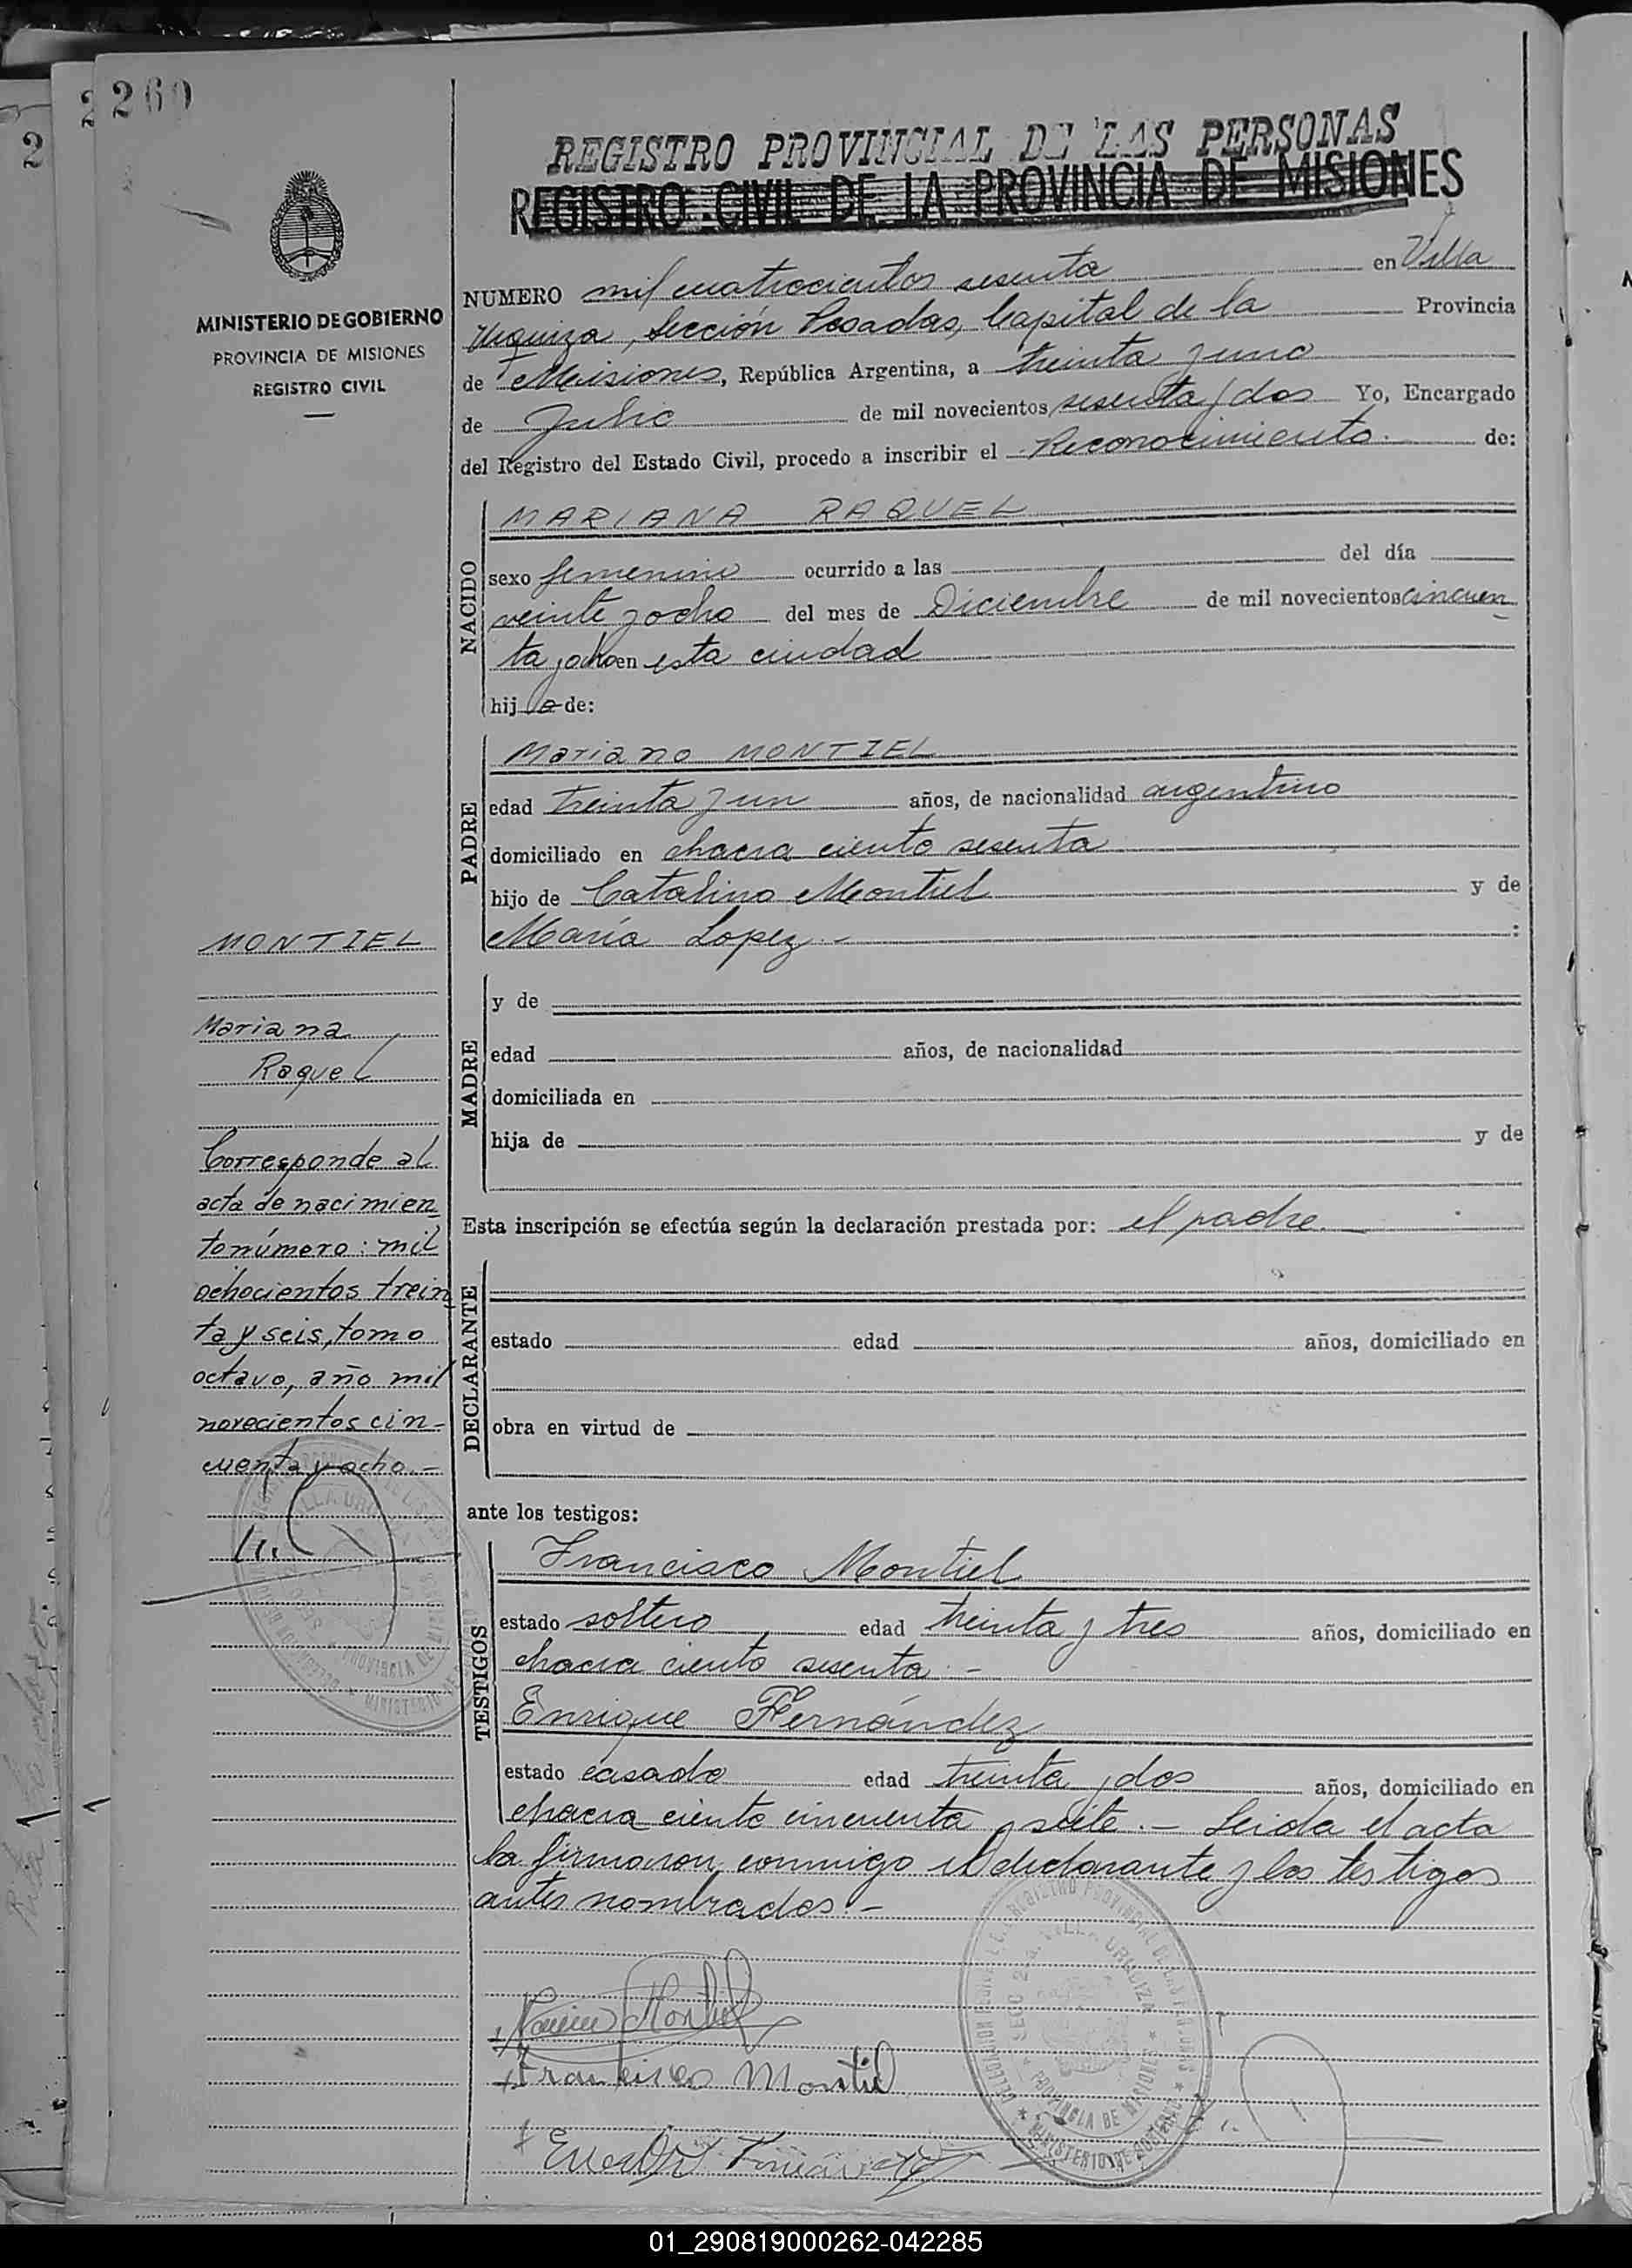 2
2
260
REGISTRO PROVINCIAL DE LAS PERSONAS
REGISTRO CIVIL DE LA PROVINCIA DE MISIONES
MINISTERIO DE GOBIERNO
PROVINCIA DE MISIONES
REGISTRO CIVIL
NUMERO mil cuatrocientos sesenta en Villa
Urquiza, Sección Posadas, Capital de la Provincia
de Misiones, República Argentina, a treinta y uno
de Julio de mil novecientos sesenta y dos Yo, Encargado
del Registro del Estado Civil, procedo a inscribir el Reconocimiento. de:
NACIDO
MARIANA RAQUEL
sexo femenino ocurrido a las del día
veinte y ocho del mes de Diciembre de mil novecientos cincuen
ta y ocho en esta ciudad
hija de:
PADRE
Mariano MONTIEL
edad treinta y un años, de nacionalidad argentino
domiciliado en chacra ciento sesenta
hijo de Catalino Montiel y de
María Lopez.- :
MADRE
y de
edad años, de nacionalidad
domiciliada en
hija de y de
Esta inscripción se efectúa según la declaración prestada por: el padre.
DECLARANTE
estado edad años, domiciliado en
obra en virtud de
ante los testigos:
TESTIGOS
Francisco Montiel
estado soltero edad treinta y tres años, domiciliado en
chacra ciento sesenta.-
Enrique Fernández
estado casado edad treinta y dos años, domiciliado en
chacra ciento cincuenta y siete.- Leida el acta
la firmaron conmigo el declarante y los testigos
antes nombrados.-
MONTIEL
Mariana
Raquel
Corresponde al
acta de nacimien
to número: mil
ochocientos trein
ta y seis, tomo
octavo, año mil
novecientos cin-
cuenta y ocho.-
Montiel
Francisco Montiel
REGISTRO PROVINCIAL DE LAS PERSONAS
SECC 2a. VILLA URQUIZA
PROVINCIA DE MISIONES
MINISTERIO DE GOBIERNO
01_290819000262-042285